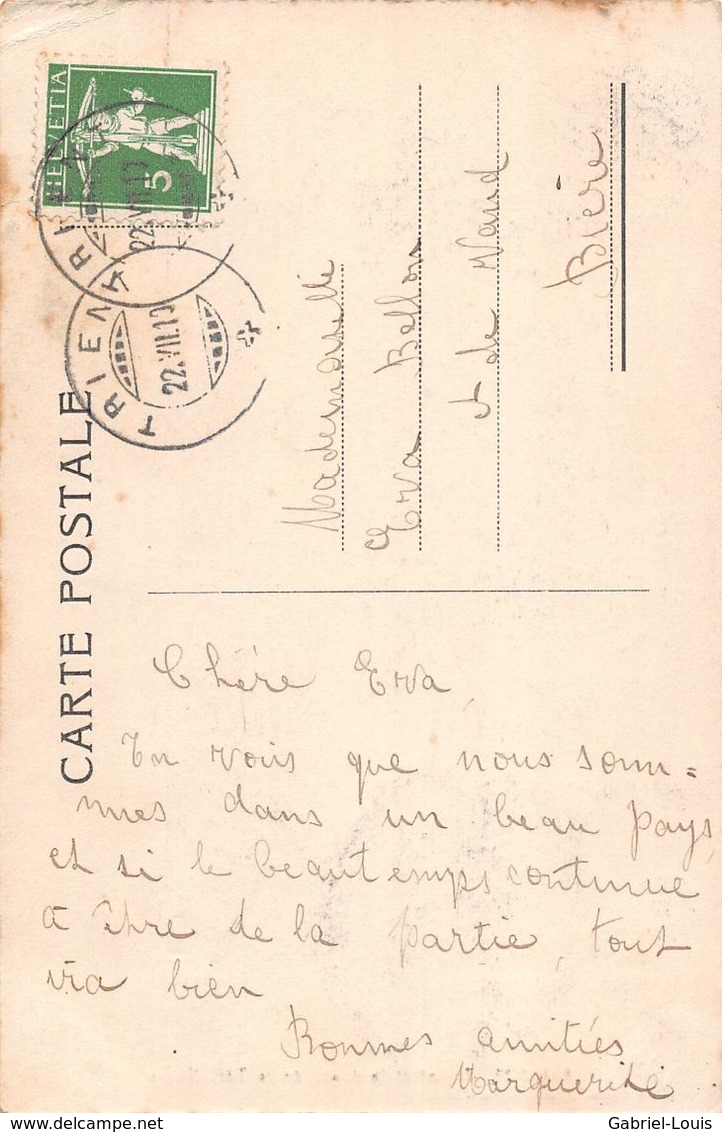 CARTE POSTALE
HELVETIA
5
TRIENT
22.VII.13
TRIENT
22.VII.13
Mademoiselle
Eva Bellon
de Vaud
Bière
Chère Eva,
Tu vois que nous som=
mes dans un beau pays,
et si le beau temps continue
à être de la partie, tout
ira bien
Bonnes amitiés
Marguerite
Gabriel-Louis